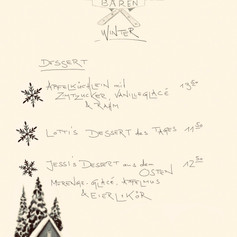 BÄREN
WINTER
DESSERT
APFELKÜCHLEIN mit 13.50
ZIMTZUCKER, VANILLEGLACÉ
& RAHM
LOTTI'S DESSERT des TAGES 11.50
JESSI'S DESSERT aus dem 12.50
OSTEN
MERENGE, GLACÉ, APFELMUS
& EIERLIKÖR